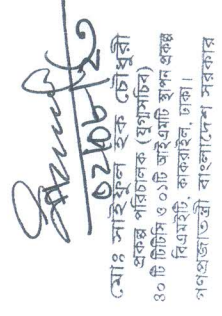 ০২/০৮/২১
মোঃ সাইফুল হক চৌধুরী
প্রকল্প পরিচালক (যুগ্মসচিব)
৪০ টি টিটিসি ও ০১টি আইএমটি স্থাপন প্রকল্প
বিএমইটি, কাকরাইল, ঢাকা।
গণপ্রজাতন্ত্রী বাংলাদেশ সরকার